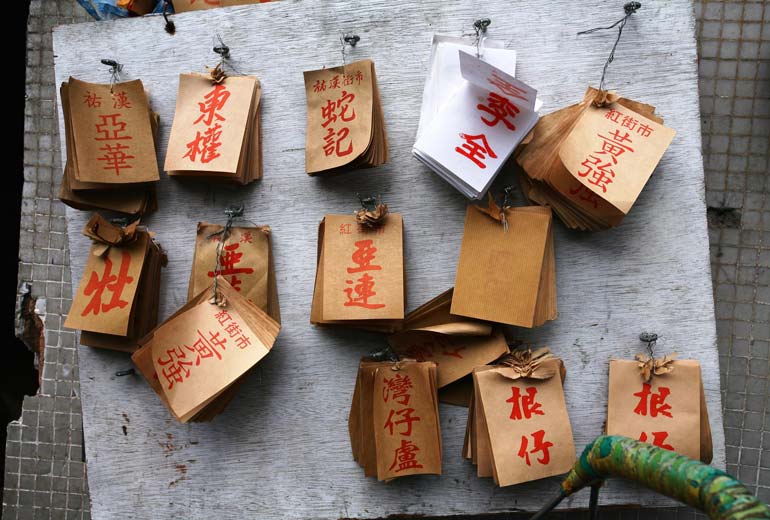 祐漢
亞華
東權
祐漢街市
蛇記
李全
紅街市
黃強
壯
漢
亞
紅街市
亞連
紅街市
黃強
灣仔盧
根仔
根仔